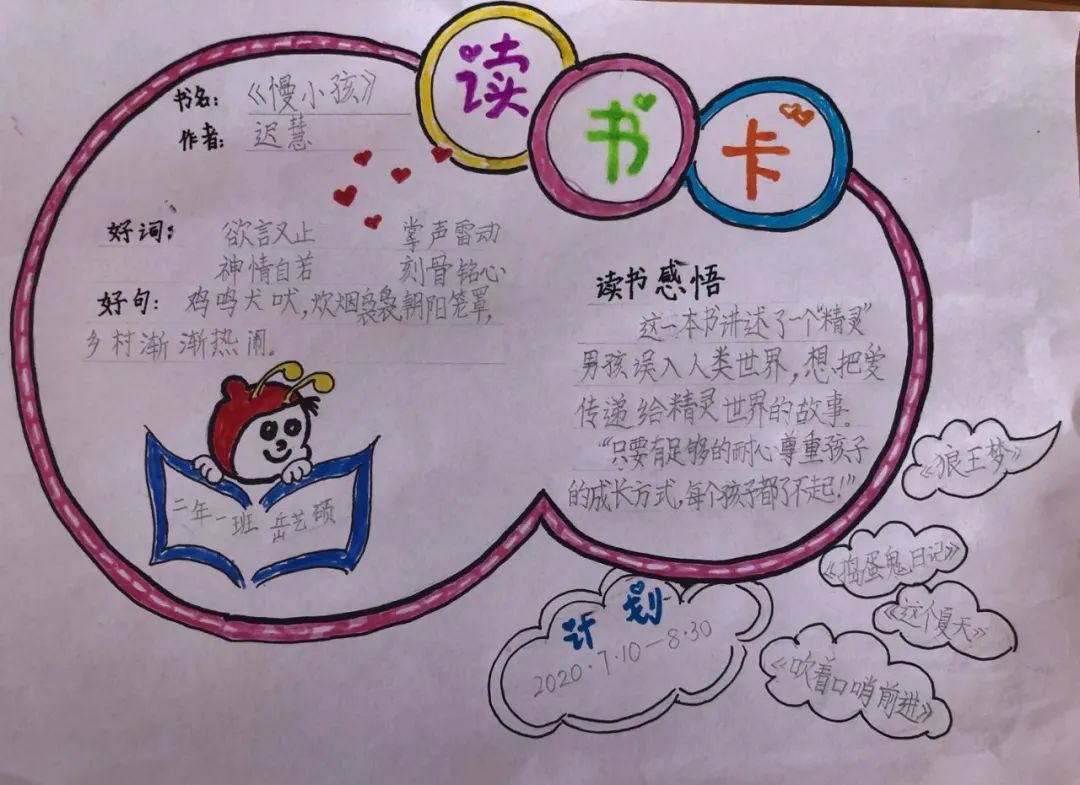 读书卡
书名：《慢小孩》
作者：迟慧
好词：欲言又止 掌声雷动
神情自若 刻骨铭心
好句：鸡鸣犬吠,炊烟袅袅,朝阳笼罩,
乡村渐渐热闹。
二年一班 岳艺硕
读书感悟
这一本书讲述了一个“精灵”
男孩误入人类世界,想把爱
传递给精灵世界的故事。
“只要有足够的耐心尊重孩子
的成长方式,每个孩子都了不起!”
计划
2020·7·10—8·30
《狼王梦》
《捣蛋鬼日记》
《这个夏天》
《吹着口哨前进》